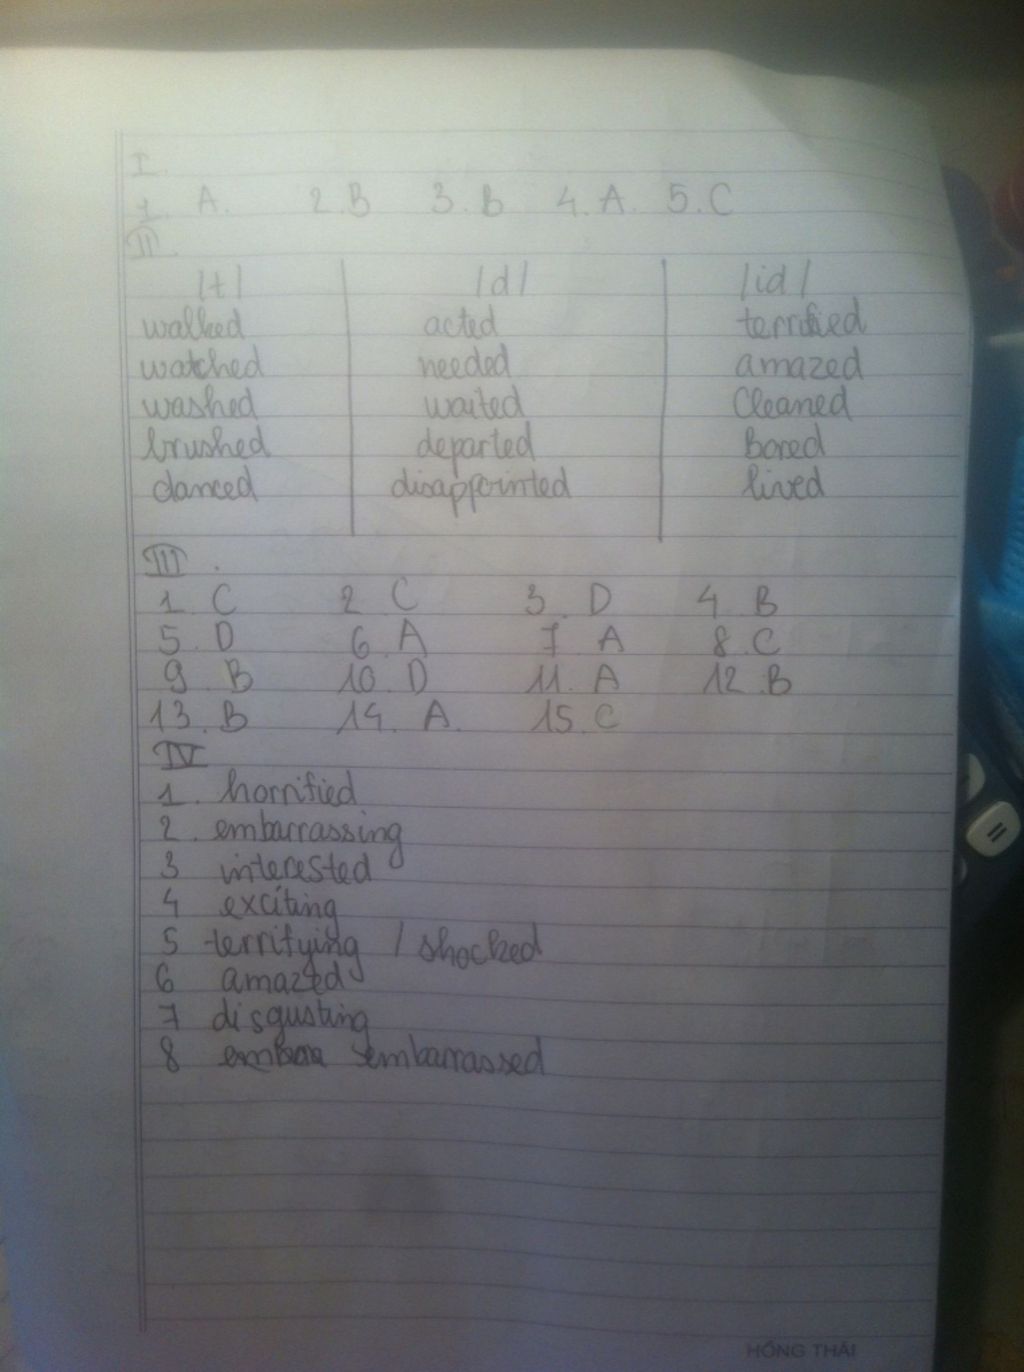 I
1. A. 2. B 3. B 4. A. 5. C
II.
/t/ /d/ /id/
walked acted terrified
watched needed amazed
washed waited Cleaned
brushed departed Bored
danced disappointed lived
III.
1. C 2. C 3. D 4. B
5. D 6. A 7. A 8. C
9. B 10. D 11. A 12. B
13. B 14. A. 15. C
IV
1. horrified
2. embarrassing
3 interested
4 exciting
5 terrifying / shocked
6 amazed
7 disgusting
8 embarrassed
HỒNG THÁI